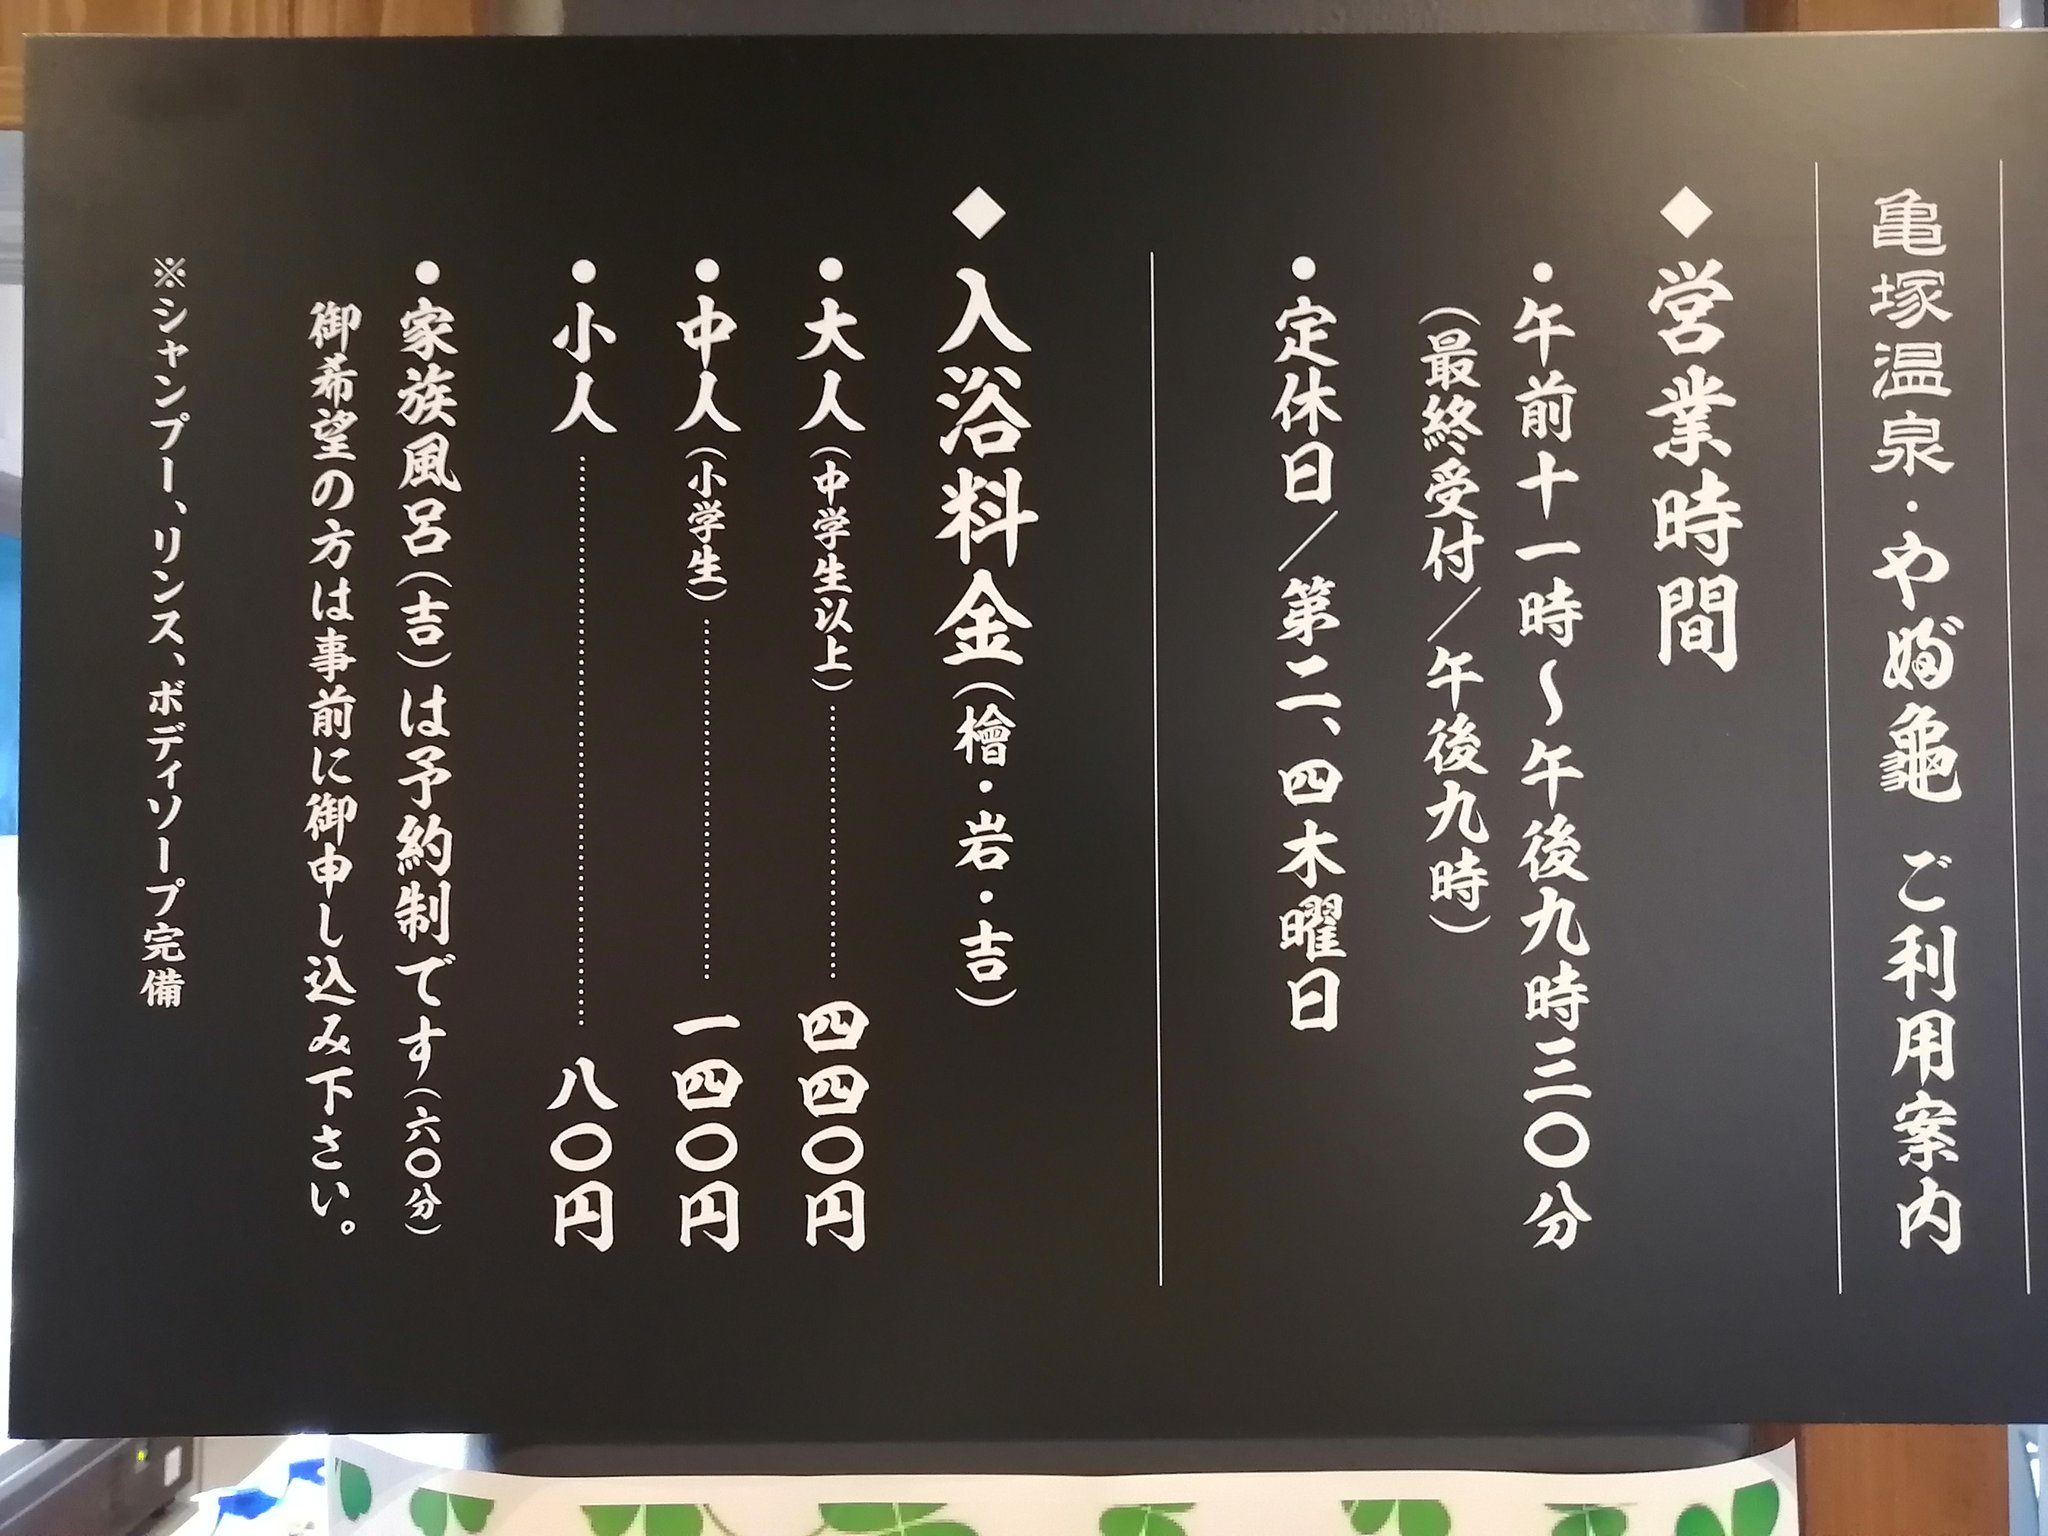 亀塚温泉・や婦龜 ご利用案内
◆営業時間
●午前十一時～午後九時三〇分
（最終受付／午後九時）
●定休日／第二、四木曜日
◆入浴料金（檜・岩・吉）
●大人（中学生以上）…………四四〇円
●中人（小学生）…………一四〇円
●小人…………八〇円
●家族風呂（吉）は予約制です（六〇分）
御希望の方は事前に御申し込み下さい。
※シャンプー、リンス、ボディソープ完備